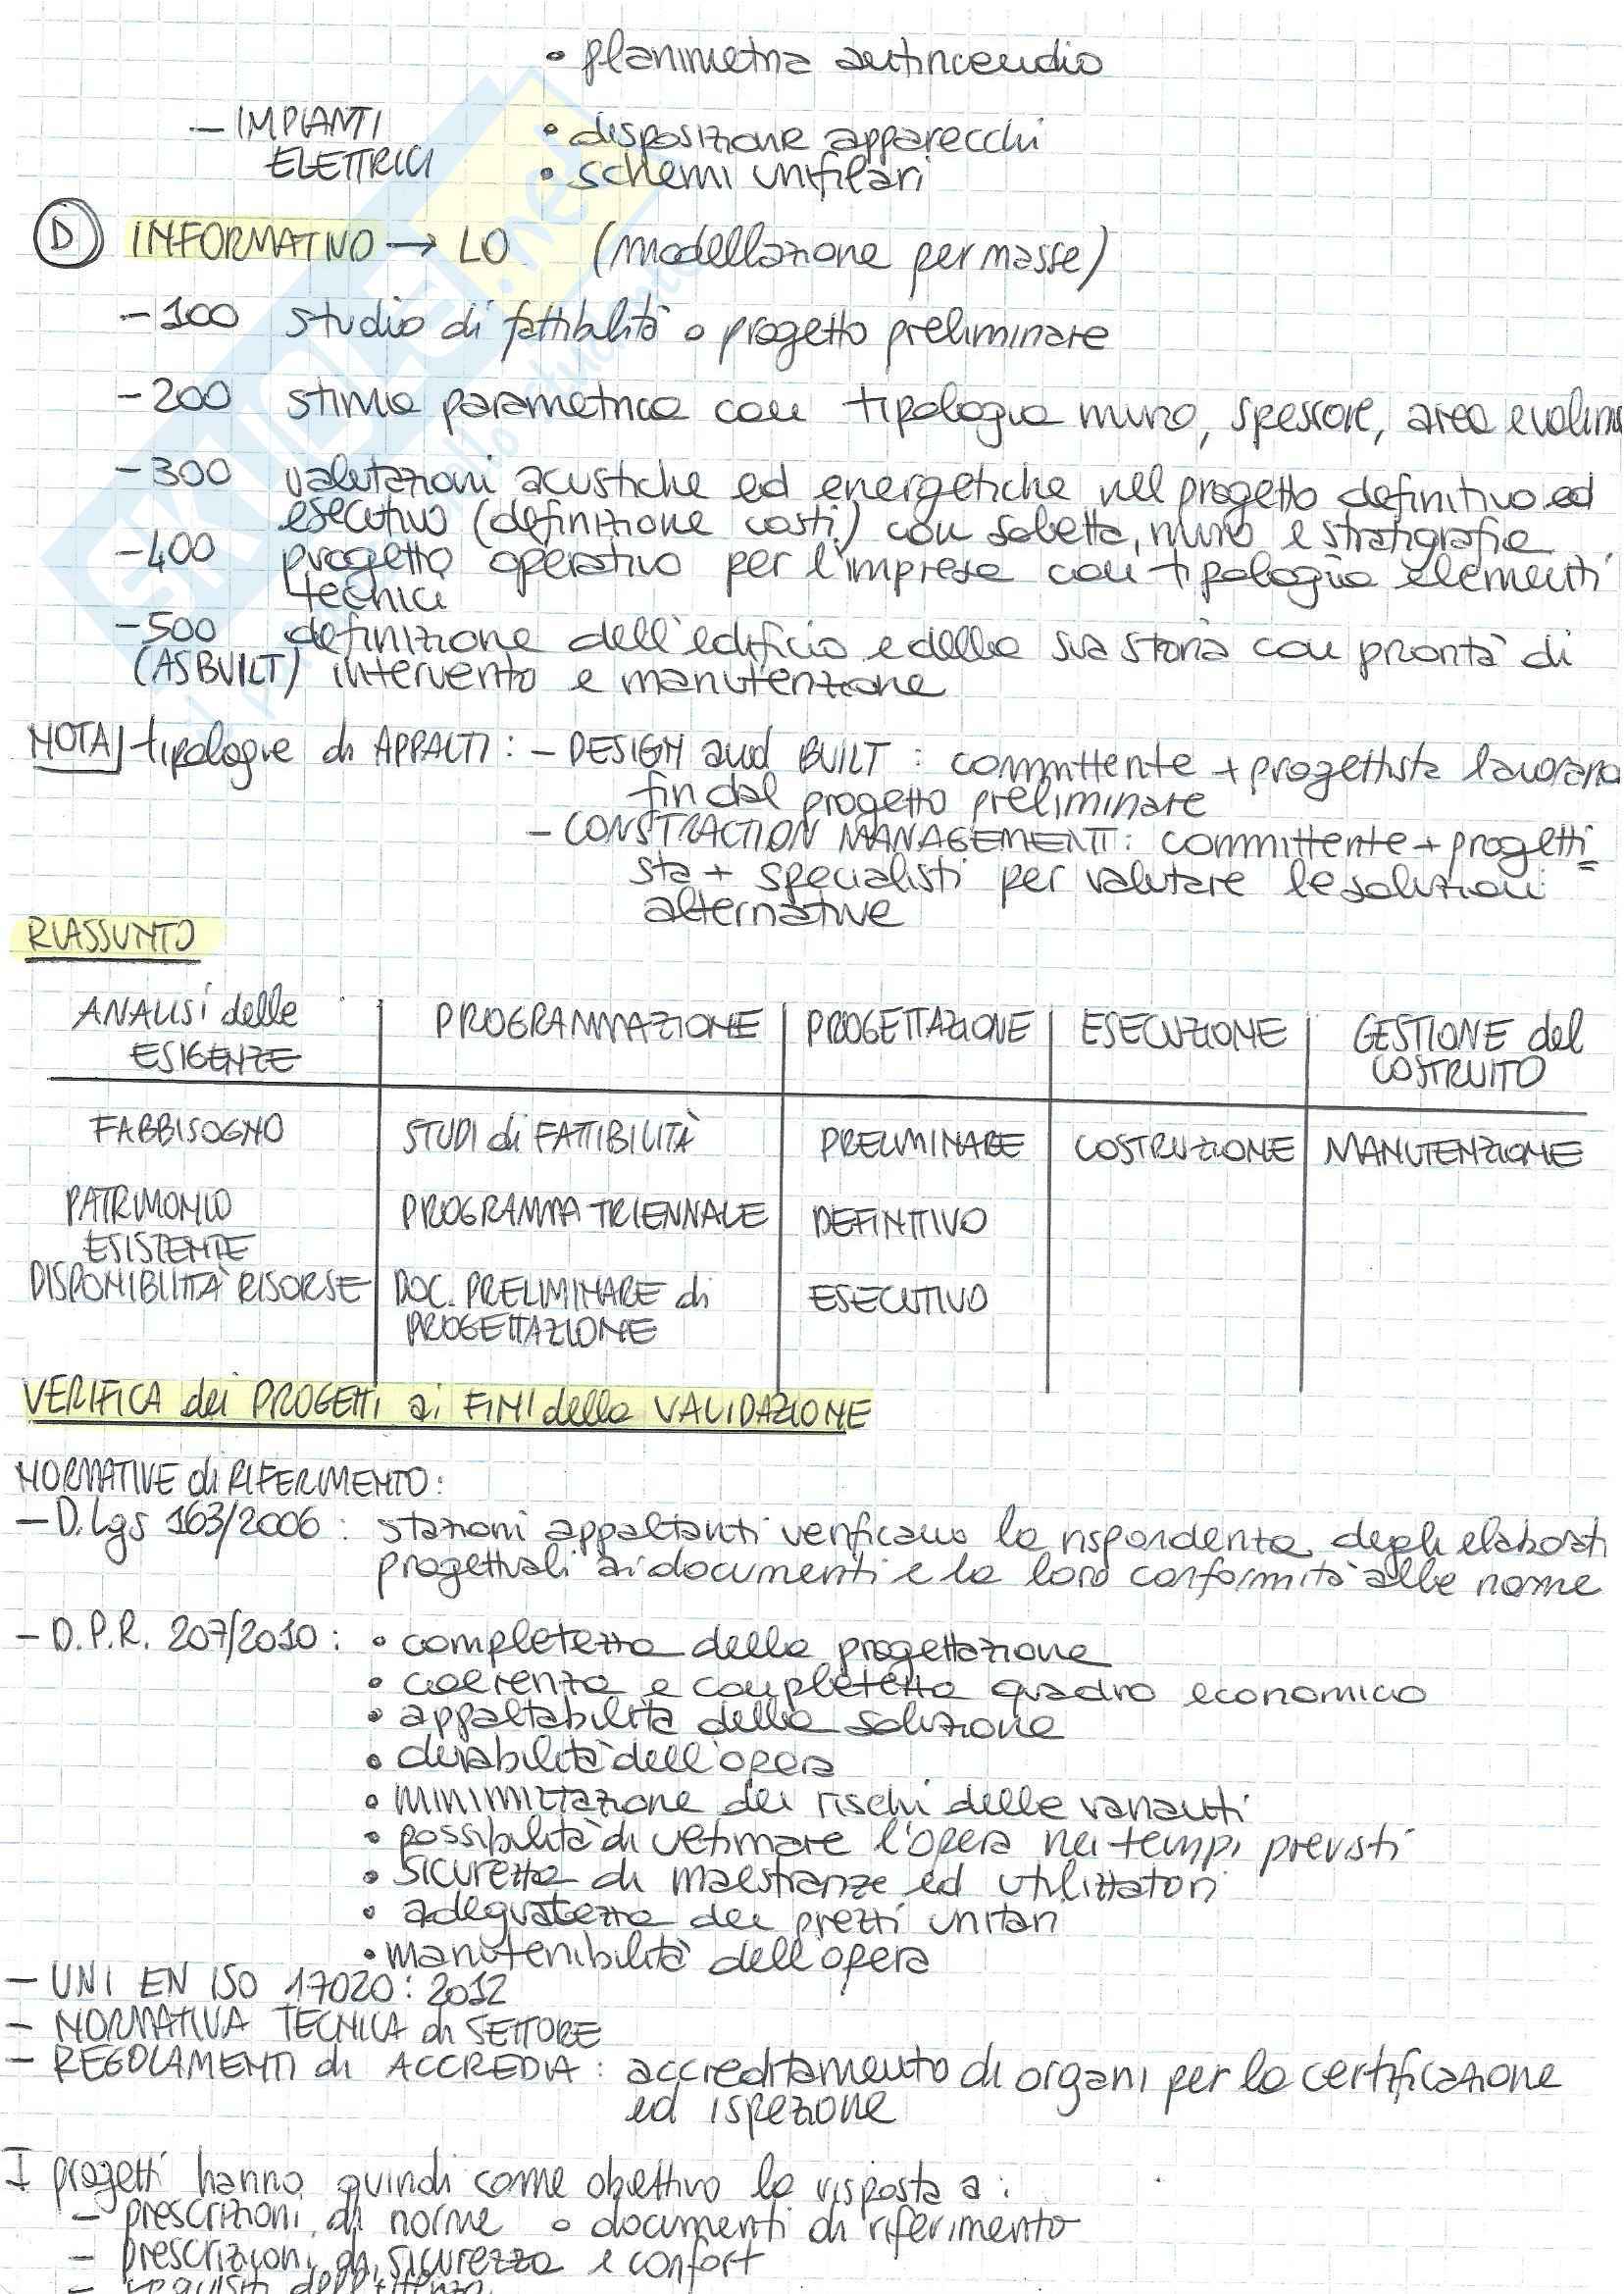 • planimetria antincendio
- IMPIANTI • disposizione apparecchi
ELETTRICI • schemi unifilari
D INFORMATIVO → LO (modellazione per masse)
- 100 studio di fattibilità o progetto preliminare
- 200 stima parametrica con tipologia muro, spessore, area e volume
- 300 valutazioni acustiche ed energetiche nel progetto definitivo ed
esecutivo (definizione costi) con soletta, muro e stratigrafie
- 400 progetto operativo per l'impresa con tipologia elementi
tecnici
- 500 definizione dell'edificio e della sua storia con priorità di
(AS BUILT) intervento e manutenzione
NOTA tipologie di APPALTI: - DESIGN and BUILT: committente + progettista lavorano
fin dal progetto preliminare
- CONSTRACTION MANAGEMENT: committente + progetti=
sta + specialisti per valutare le soluzioni
alternative
RIASSUNTO
ANALISI delle ESIGENZE | PROGRAMMAZIONE | PROGETTAZIONE | ESECUZIONE | GESTIONE del COSTRUITO
FABBISOGNO | STUDI di FATTIBILITÀ | PRELIMINARE | COSTRUZIONE | MANUTENZIONE
PATRIMONIO ESISTENTE | PROGRAMMA TRIENNALE | DEFINITIVO
DISPONIBILITÀ RISORSE | DOC. PRELIMINARE di PROGETTAZIONE | ESECUTIVO
VERIFICA dei PROGETTI ai FINI della VALIDAZIONE
NORMATIVE di RIFERIMENTO:
- D.Lgs 163/2006: stazioni appaltanti verificano la rispondenza degli elaborati
progettuali ai documenti e la loro conformità alle norme
- D.P.R. 207/2010: • completezza della progettazione
• coerenza e completezza quadro economico
• appaltabilità della soluzione
• durabilità dell'opera
• minimizzazione dei rischi delle varianti
• possibilità di ultimare l'opera nei tempi previsti
• sicurezza di maestranze ed utilizzatori
• adeguatezza dei prezzi unitari
• manutenibilità dell'opera
- UNI EN ISO 17020:2012
- NORMATIVA TECNICA di SETTORE
- REGOLAMENTI di ACCREDIA: accreditamento di organi per la certificazione
ed ispezione
I progetti hanno quindi come obiettivo la risposta a:
- prescrizioni di norme o documenti di riferimento
- prescrizioni di sicurezza e confort
- requisiti dell'utenza
SKUOLA.net